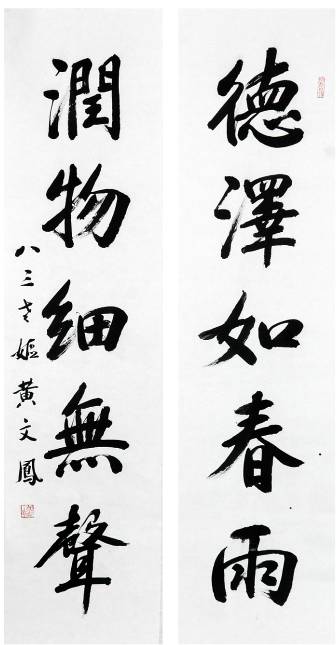 德澤如春雨
潤物細無聲
八三老嫗黃文鳳